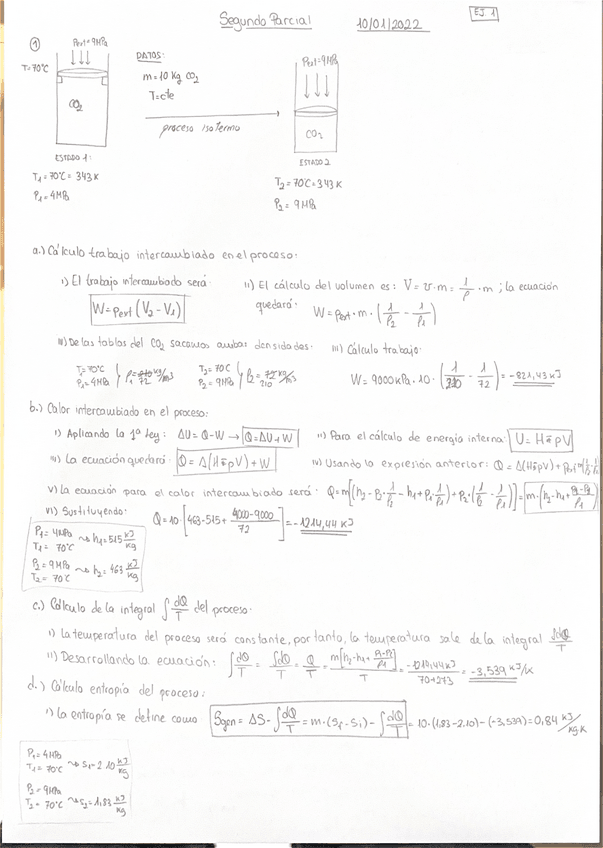 Segundo Parcial 10/01/2022 EJ. 1
① Pext=9MPa
T=70ºC
CO₂
ESTADO 1:
T₁=70ºC=343K
P₁=4MPa
DATOS:
m=10 Kg CO₂
T=cte
proceso isotermo
Pext=9MPa
CO₂
ESTADO 2
T₂=70ºC=343K
P₂=9MPa
a.) Cálculo trabajo intercambiado en el proceso:
i) El trabajo intercambiado será:
W=Pext(V₂-V₁)
ii) El cálculo del volumen es: V=v·m=1/ρ·m; la ecuación
quedará: W=Pext·m·(1/ρ₂-1/ρ₁)
iii) De las tablas del CO₂ sacamos ambas densidades.
T₁=70ºC
P₁=4MPa } ρ₁= 72 kg/m3
T₂=70ºC
P₂=9MPa } ρ₂= 210 kg/m3
iii) Cálculo trabajo:
W=9000kPa·10·(1/210-1/72)=-821,43 kJ
b.) Calor intercambiado en el proceso:
i) Aplicando la 1ª Ley: ΔU=Q-W→Q=ΔU+W
ii) Para el cálculo de energía interna: U=H-pV
iii) La ecuación quedará: Q=Δ(H-pV)+W
iv) Usando la expresión anterior: Q=Δ(H-pV)+Pext·m(1/ρ₂-1/ρ₁)
v) La ecuación para el calor intercambiado será: Q=m[(h₂-P₂·1/ρ₂-h₁+P₁·1/ρ₁)+P₂(1/ρ₂-1/ρ₁)]=m·(h₂-h₁+(P₁-P₂)/ρ₁)
vi) Sustituyendo: Q=10·[463-515+(4000-9000)/72]=-1214,44 kJ
P₁=4MPa
T₁=70ºC ⤳ h₁=515 kJ/kg
P₂=9MPa
T₂=70ºC ⤳ h₂=463 kJ/kg
c.) Cálculo de la integral ∫dQ/T del proceso.
i) La temperatura del proceso será constante, por tanto, la temperatura sale de la integral ∫dQ/T
ii) Desarrollando la ecuación: ∫dQ/T=∫dQ/T=Q/T=m[h₂-h₁+(P₁-P₂)/ρ₁]/T=-1214,44kJ/(70+273)=-3,539 kJ/K
d.) Cálculo entropía del proceso:
i) La entropía se define como Sgen=ΔS-∫dQ/T=m·(Sf-Si)-∫dQ/T=10·(1,83-2.10)-(-3,539)=0,84 kJ/kg K
P₁=4MPa
T₁=70ºC ⤳ s₁=2.10 kJ/kg
P₂=9MPa
T₂=70ºC ⤳ s₂=1,83 kJ/kg